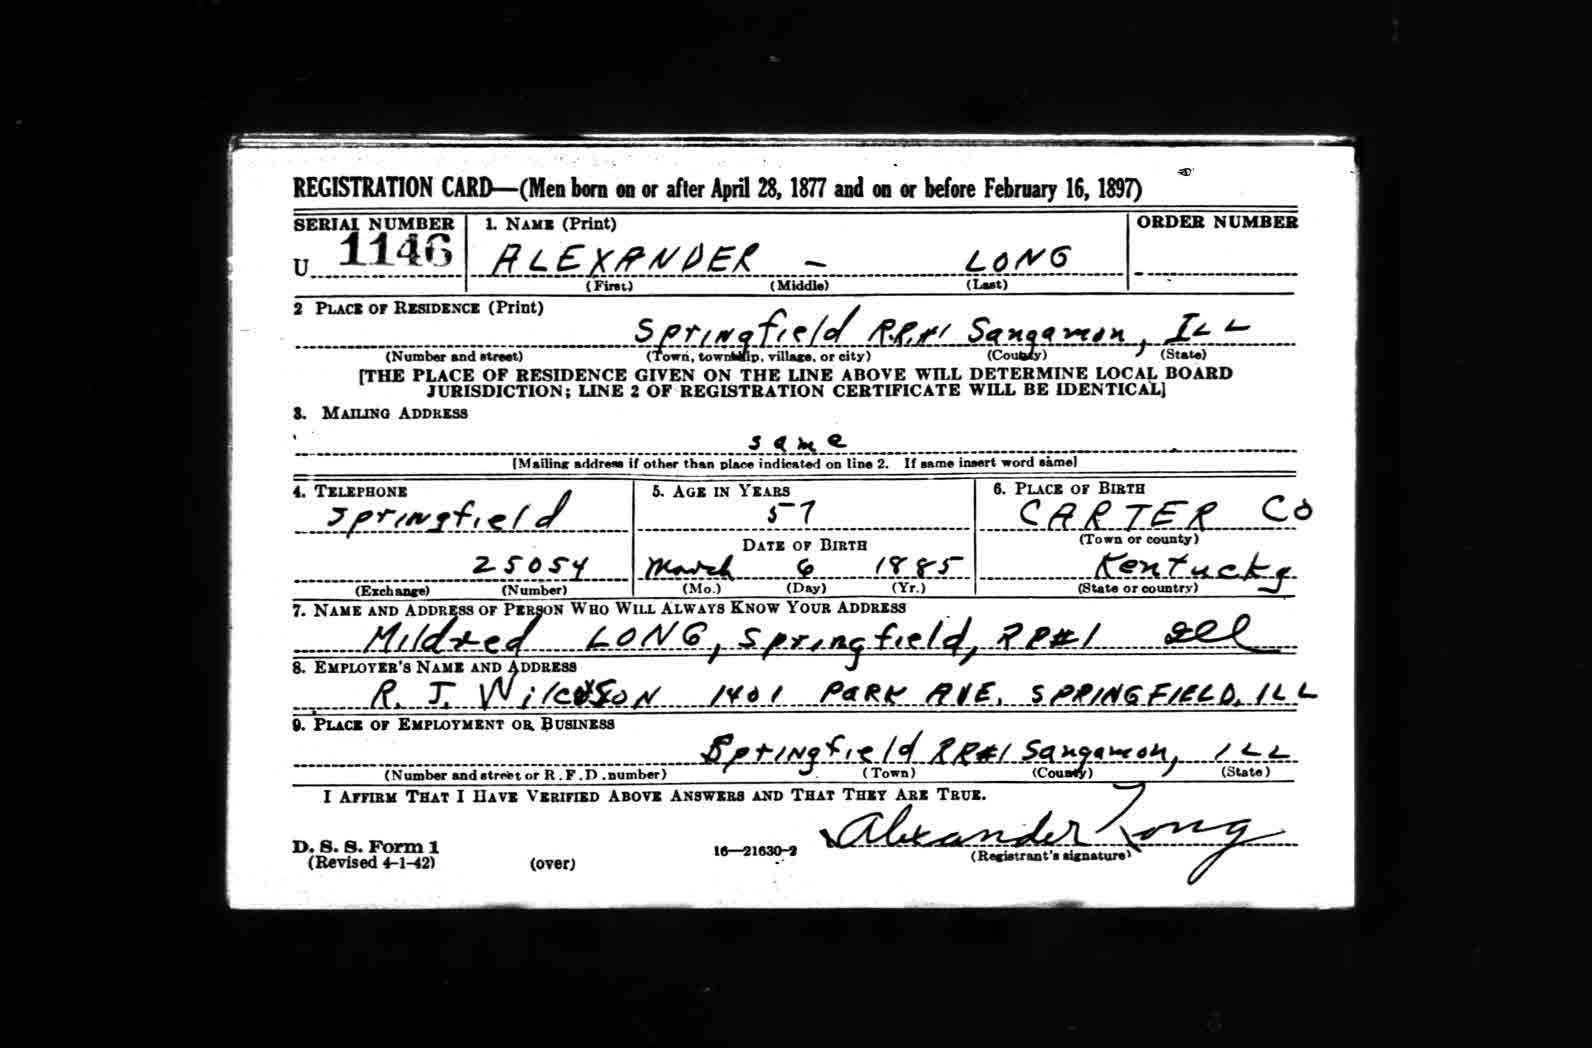 REGISTRATION CARD—(Men born on or after April 28, 1877 and on or before February 16, 1897)
SERIAL NUMBER 1. NAME (Print) ORDER NUMBER
U 1146 ALEXANDER – LONG
(First) (Middle) (Last)
2 PLACE OF RESIDENCE (Print)
Springfield R.R.#1 Sangamon, ILL
(Number and street) (Town, township, village, or city) (County) (State)
[THE PLACE OF RESIDENCE GIVEN ON THE LINE ABOVE WILL DETERMINE LOCAL BOARD
JURISDICTION; LINE 2 OF REGISTRATION CERTIFICATE WILL BE IDENTICAL]
3. MAILING ADDRESS
same
[Mailing address if other than place indicated on line 2. If same insert word same]
4. TELEPHONE 5. AGE IN YEARS 6. PLACE OF BIRTH
Springfield 57 CARTER Co
DATE OF BIRTH (Town or county)
25054 March 6 1885 Kentucky
(Exchange) (Number) (Mo.) (Day) (Yr.) (State or country)
7. NAME AND ADDRESS OF PERSON WHO WILL ALWAYS KNOW YOUR ADDRESS
Mildred LONG, Springfield, RR#1 Ill
8. EMPLOYER'S NAME AND ADDRESS
R. J. 1401 PARK AVE. SPRINGFIELD, ILL
9. PLACE OF EMPLOYMENT OR BUSINESS
Springfield RR#1 Sangamon, ILL
(Number and street or R.F.D. number) (Town) (County) (State)
I AFFIRM THAT I HAVE VERIFIED ABOVE ANSWERS AND THAT THEY ARE TRUE.
Alexander Long
D. S. S. Form 1
(Revised 4-1-42) (over) 16—21630-2 (Registrant's signature)